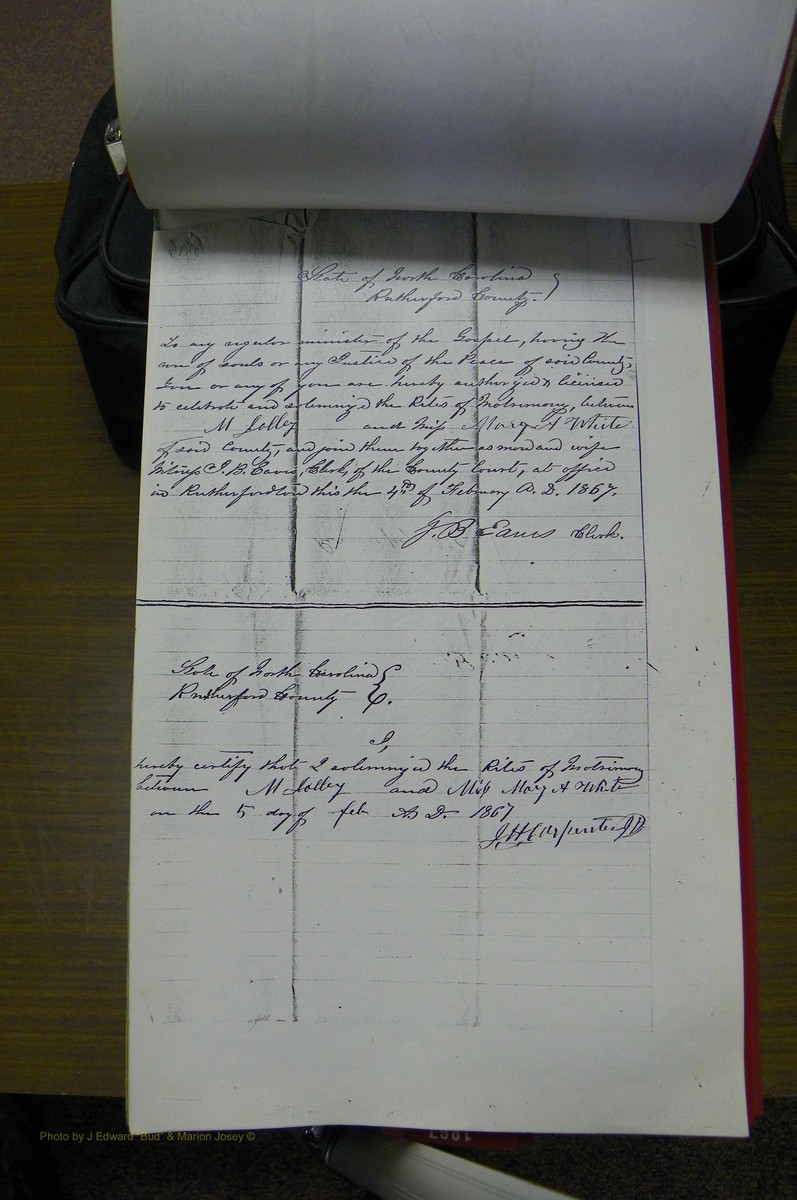 State of North Carolina
Rutherford County.
To any regular minister of the Gospel, having the
cure of souls or any Justice of the Peace of said County,
You or any of you are hereby authorized & licensed
to celebrate and solemnize the Rites of Matrimony, between
M Jolley and Miss Mary A White
of said County, and join them together as man and wife
Witness J. B. Eaves, Clerk, of the County Courts, at office
in Rutherfordton this the 4th of February A. D. 1867.
J. B Eaves Clerk.
State of North Carolina
Rutherford County
I,
hereby certify that I solemnized the Rites of Matrimony
between M Jolley and Miss Mary A White
on the 5 day of Feb A. D. 1867
J. H. Carpenter JP
Photo by J Edward "Bud" & Marion Josey ©
1867